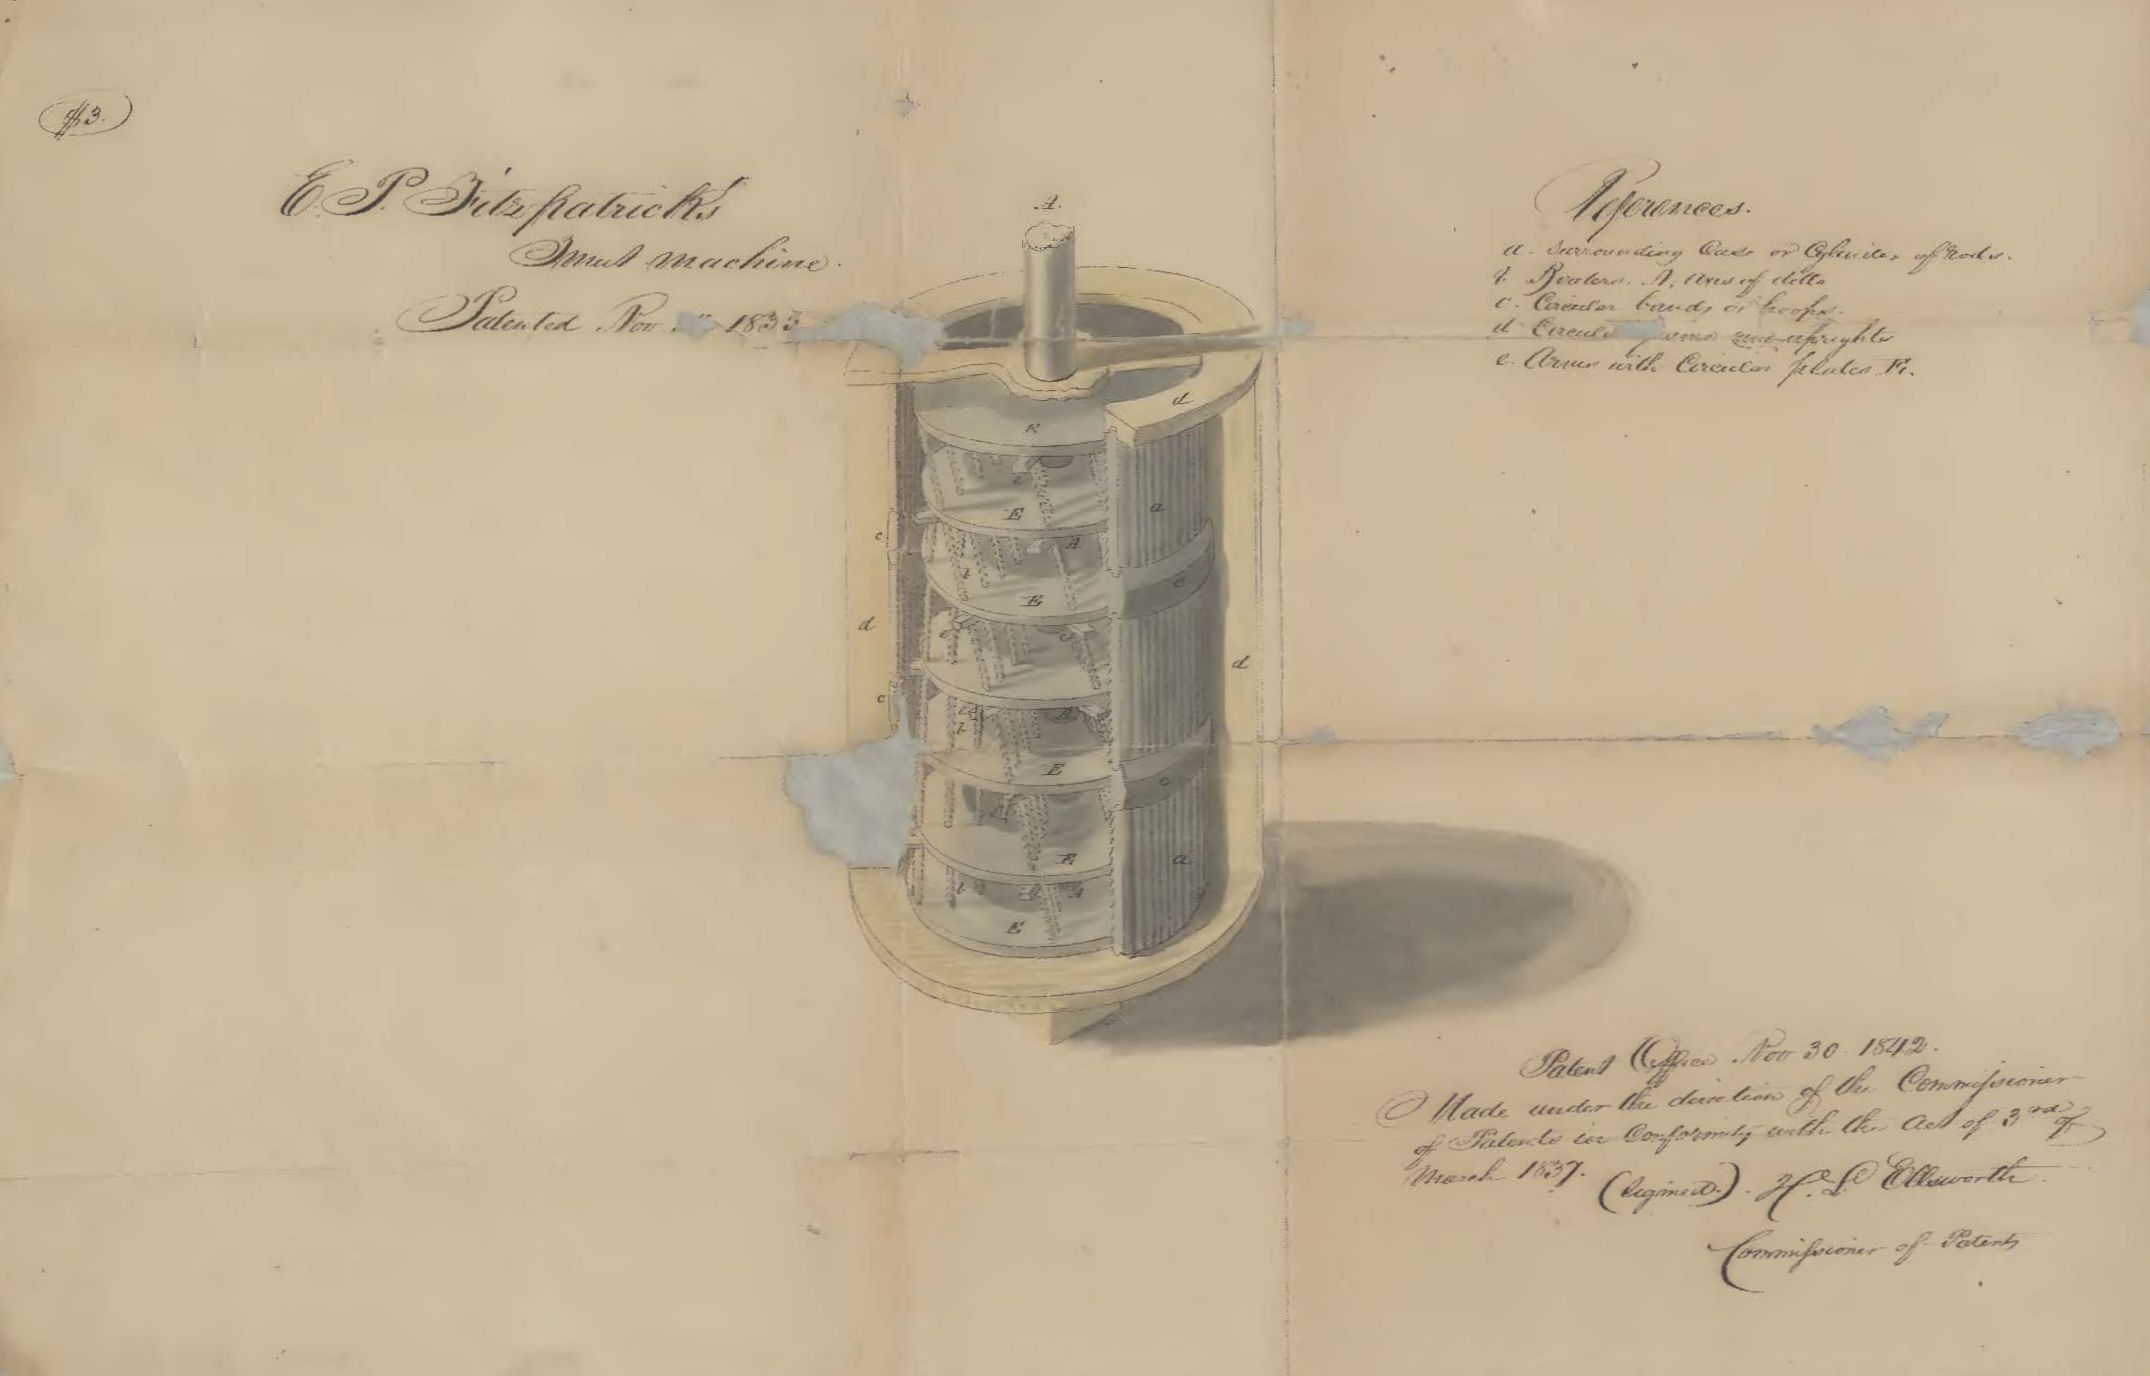 $3.
E. P. Fitzpatrick's
Smut machine.
Patented Nov 1833
References.
a. Surrounding Case or Cylinder of Rods.
b. Beaters. A, axis of ditto
c. Circular bands or hoops.
d. Circular frame and uprights
e. Arms with Circular plates E.
A.
d
E
a
E
A
c
c
E
d
d
c
E
c
E
a
E
Patent Office Nov 30. 1842.
Made under the direction of the Commissioner
of Patents in Conformity with the Act of 3rd of
March 1837. (Signed). H. L. Ellsworth
Commissioner of Patents